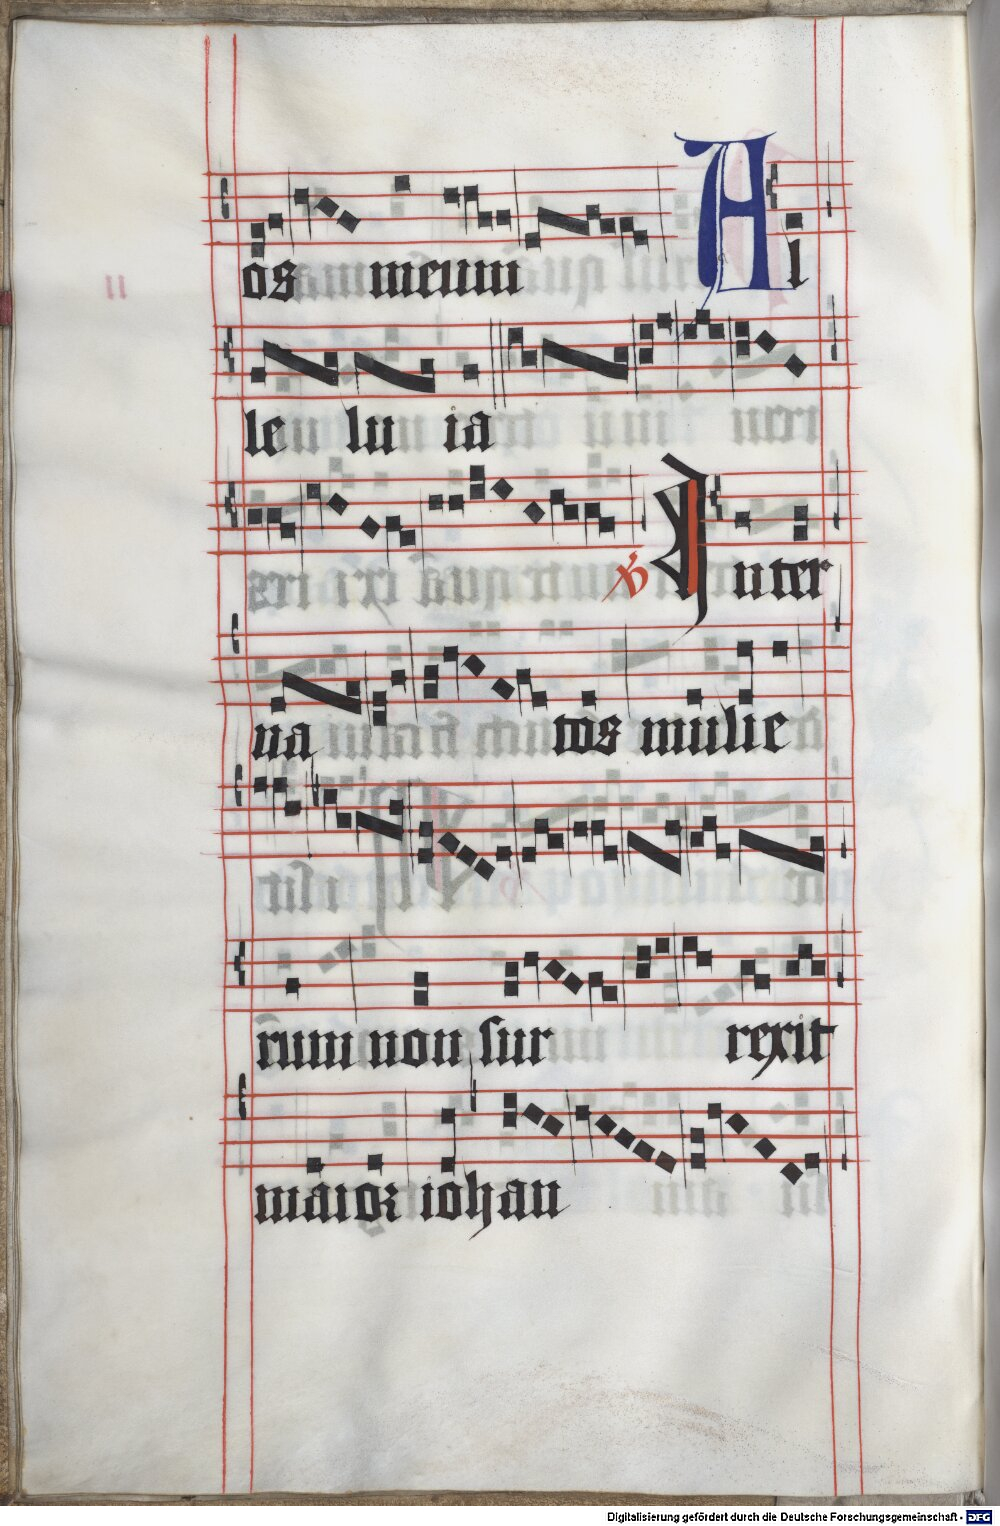 os meum Al
le lu ia
℣ Inter
na tos mulie
rum non sur rexit
maior iohan
Digitalisierung gefördert durch die Deutsche Forschungsgemeinschaft - DFG